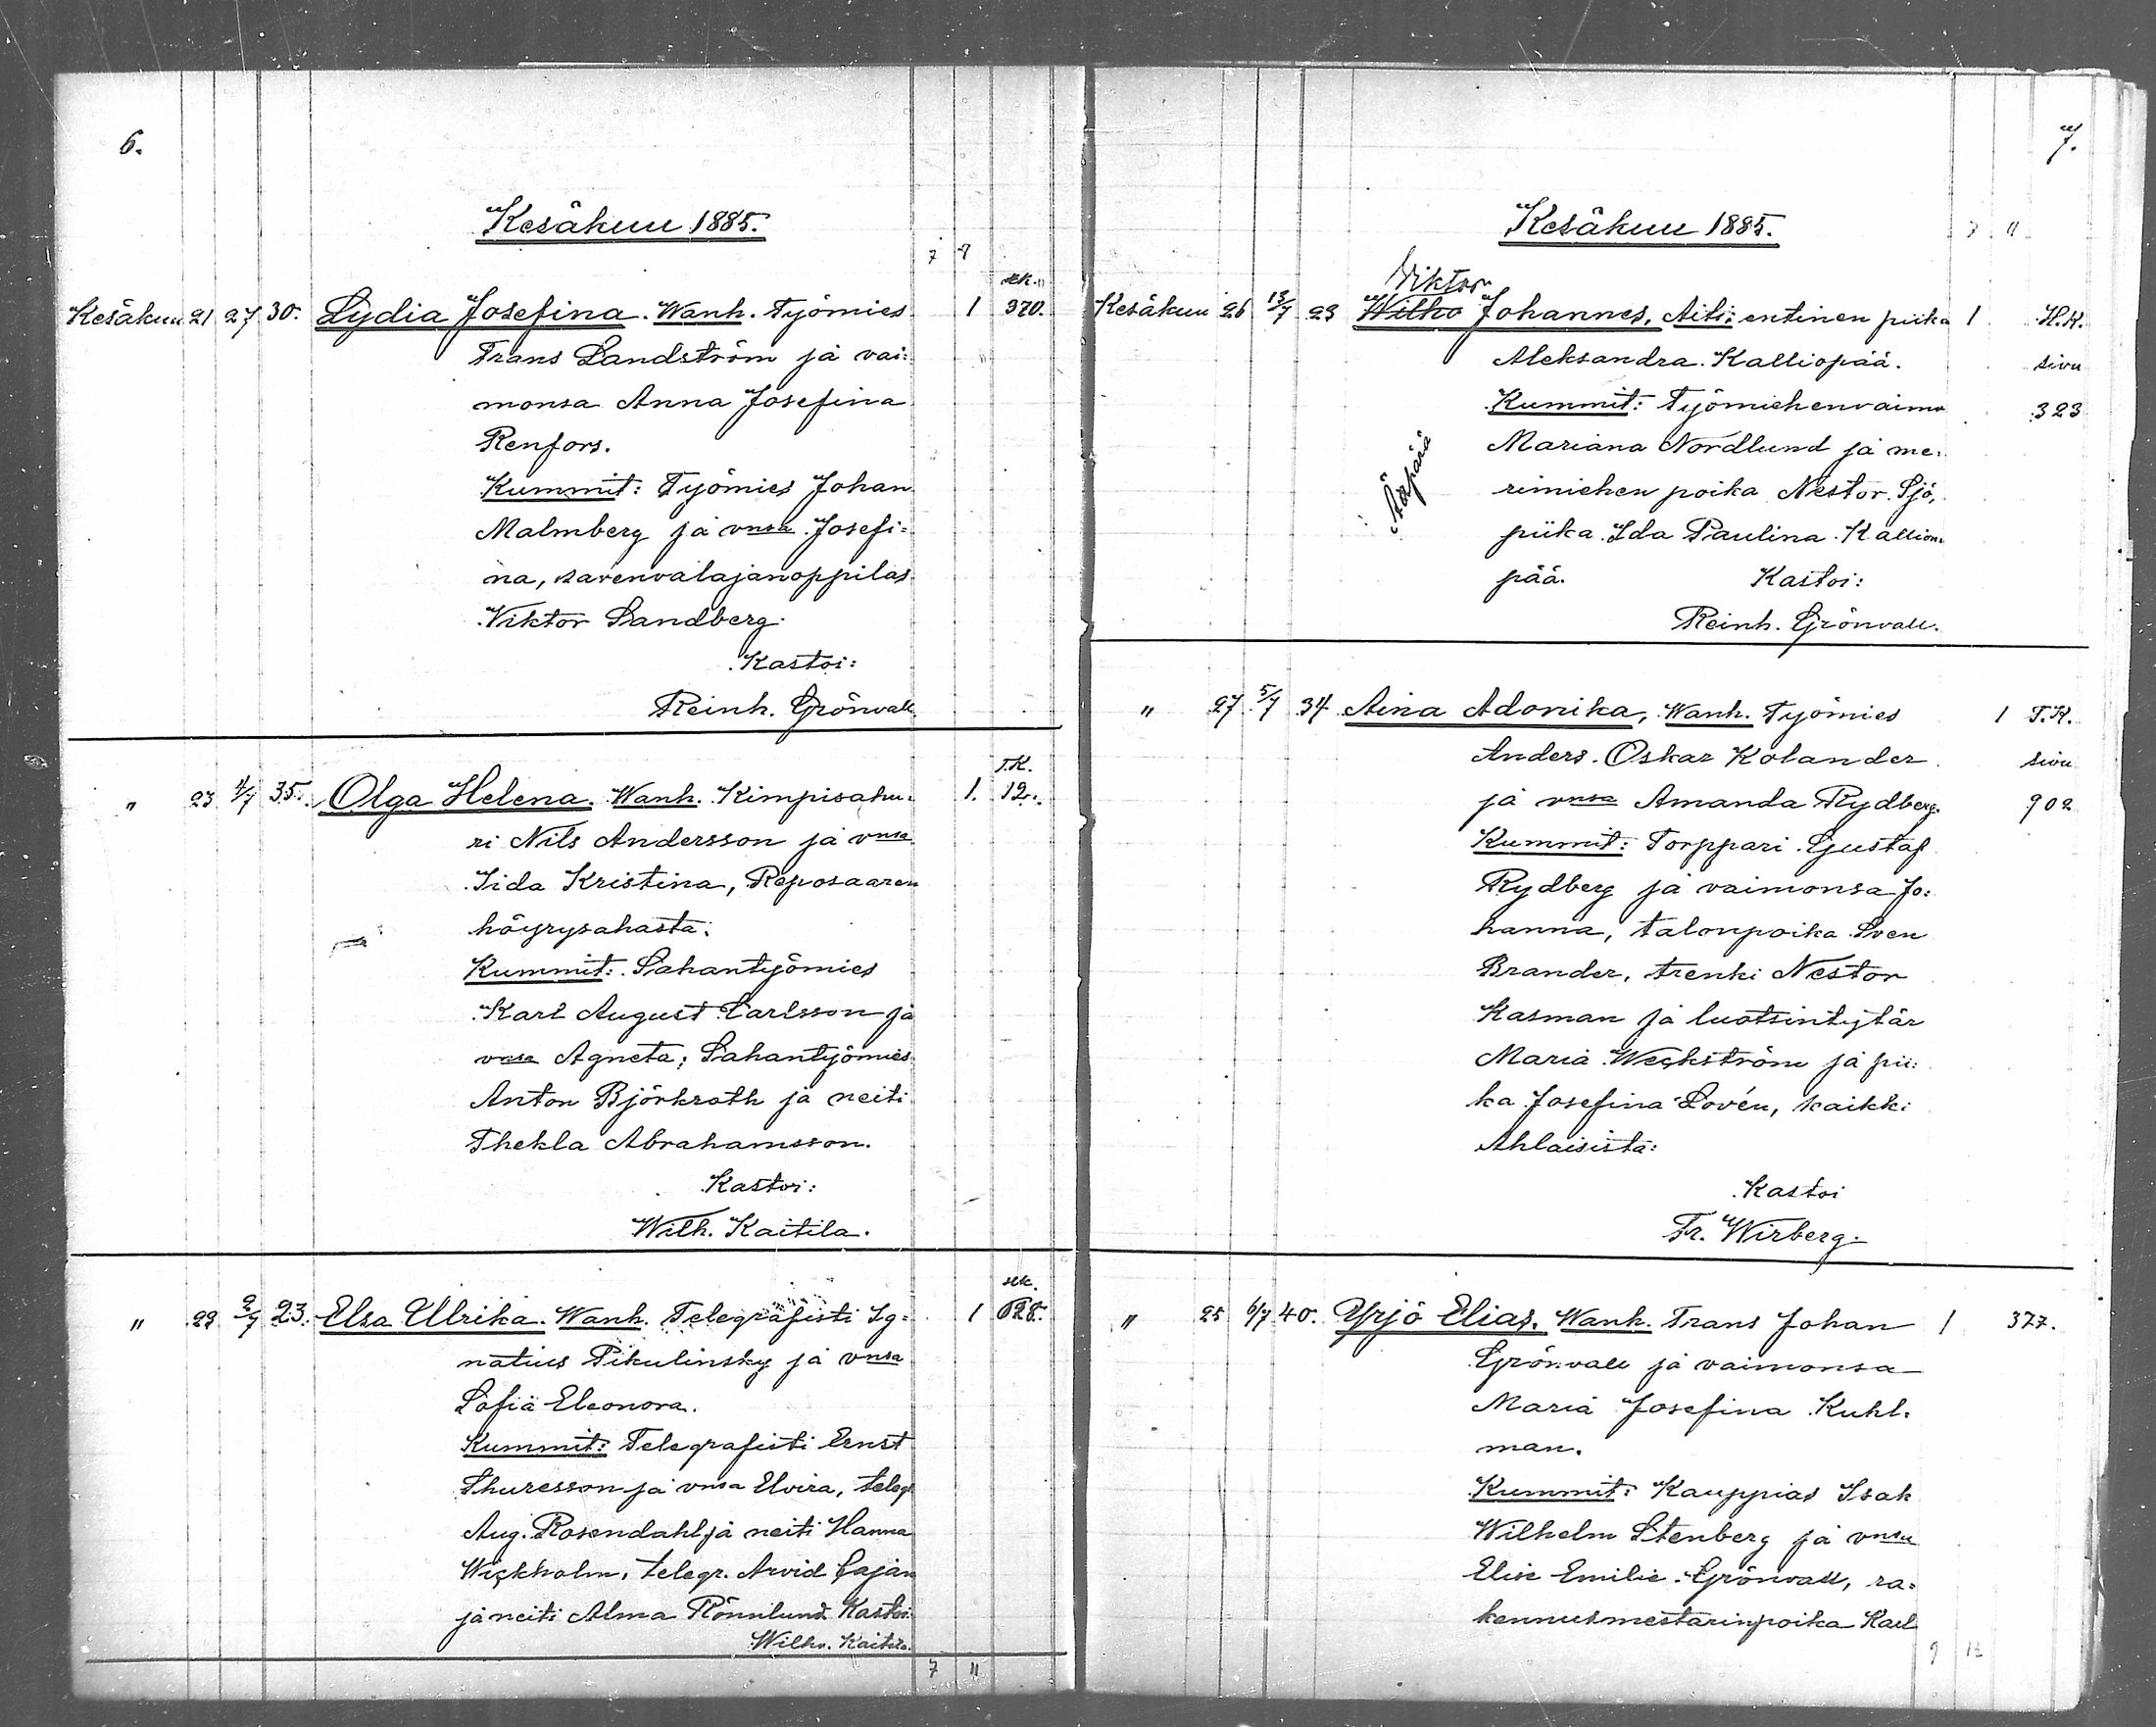 6.
Kesäkuu 1885.
7 8
sk.
Kesäkuu 21 27 30. Lydia Josefina. Wanh. Työmies 1 370.
Frans Landström ja vai=
monsa Anna Josefina
Renfors.
Kummit: Työmies Johan
Malmberg ja vnsa Josefi=
na, savenvalajanoppilas
Viktor Sandberg.
Kastoi:
Reinh. Grönvall
T.K.
" 23 4/7 35. Olga Helena. Wanh. Kimpisahu= 1. 12.
ri Nils Andersson ja vnsa
Iida Kristina, Reposaaren
höyrysahasta.
Kummit: Sahantyömies
Karl August Carlsson ja
vnsa Agneta; Sahantyömies
Anton Björkroth ja neiti
Thekla Abrahamsson.
Kastoi:
Wilh. Kaitila.
sk.
" 22 2/7 23. Elsa Ulrika. Wanh. Telegrafisti Ig= 1 628.
natius Pikulinsky ja vnsa
Sofia Eleonora.
Kummit: Telegrafisti Ernst
Thuresson ja vnsa Elvira, telegr
Aug. Rosendahl ja neiti Hanna
Wickholm, telegr. Arvid Cajan
ja neiti Alma Rönnlund. Kastoi
Wilh. Kaitila.
7 11
7.
Kesäkuu 1885.
7 11
Viktor
Kesäkuu 26 13/7 23 Wilho Johannes, Äiti: entinen piika 1 H.K.
Aleksandra Kalliopää. sivu
Kummit: Työmiehenvaimo 323
Mariana Nordlund ja me=
rimiehen poika Nestor Sjö,
piika Ida Paulina Kallion=
pää. Kastoi:
Äpärä
Reinh. Grönvall.
" 27 5/7 34 Aina Adonika, Wanh. Työmies 1 T.K.
Anders Oskar Kolander sivu
ja vnsa Amanda Rydberg. 902
Kummit: Torppari Gustaf
Rydberg ja vaimonsa Jo=
hanna, talonpoika Sven
Brander, trenki Nestor
Kasman ja luotsintytär
Maria Weckström ja pii=
ka Josefina Lovén, kaikki
Ahlaisista:
Kastoi
Fr. Wirberg.
" 25 6/7 40. Yrjö Elias. Wanh. Frans Johan 1 377.
Grönvall ja vaimonsa
Maria Josefina Kuhl=
man.
Kummit: Kauppias Isak
Wilhelm Stenberg ja vnsa
Elise Emilie Grönvall, ra=
kennusmestarinpoika Karl
9 12